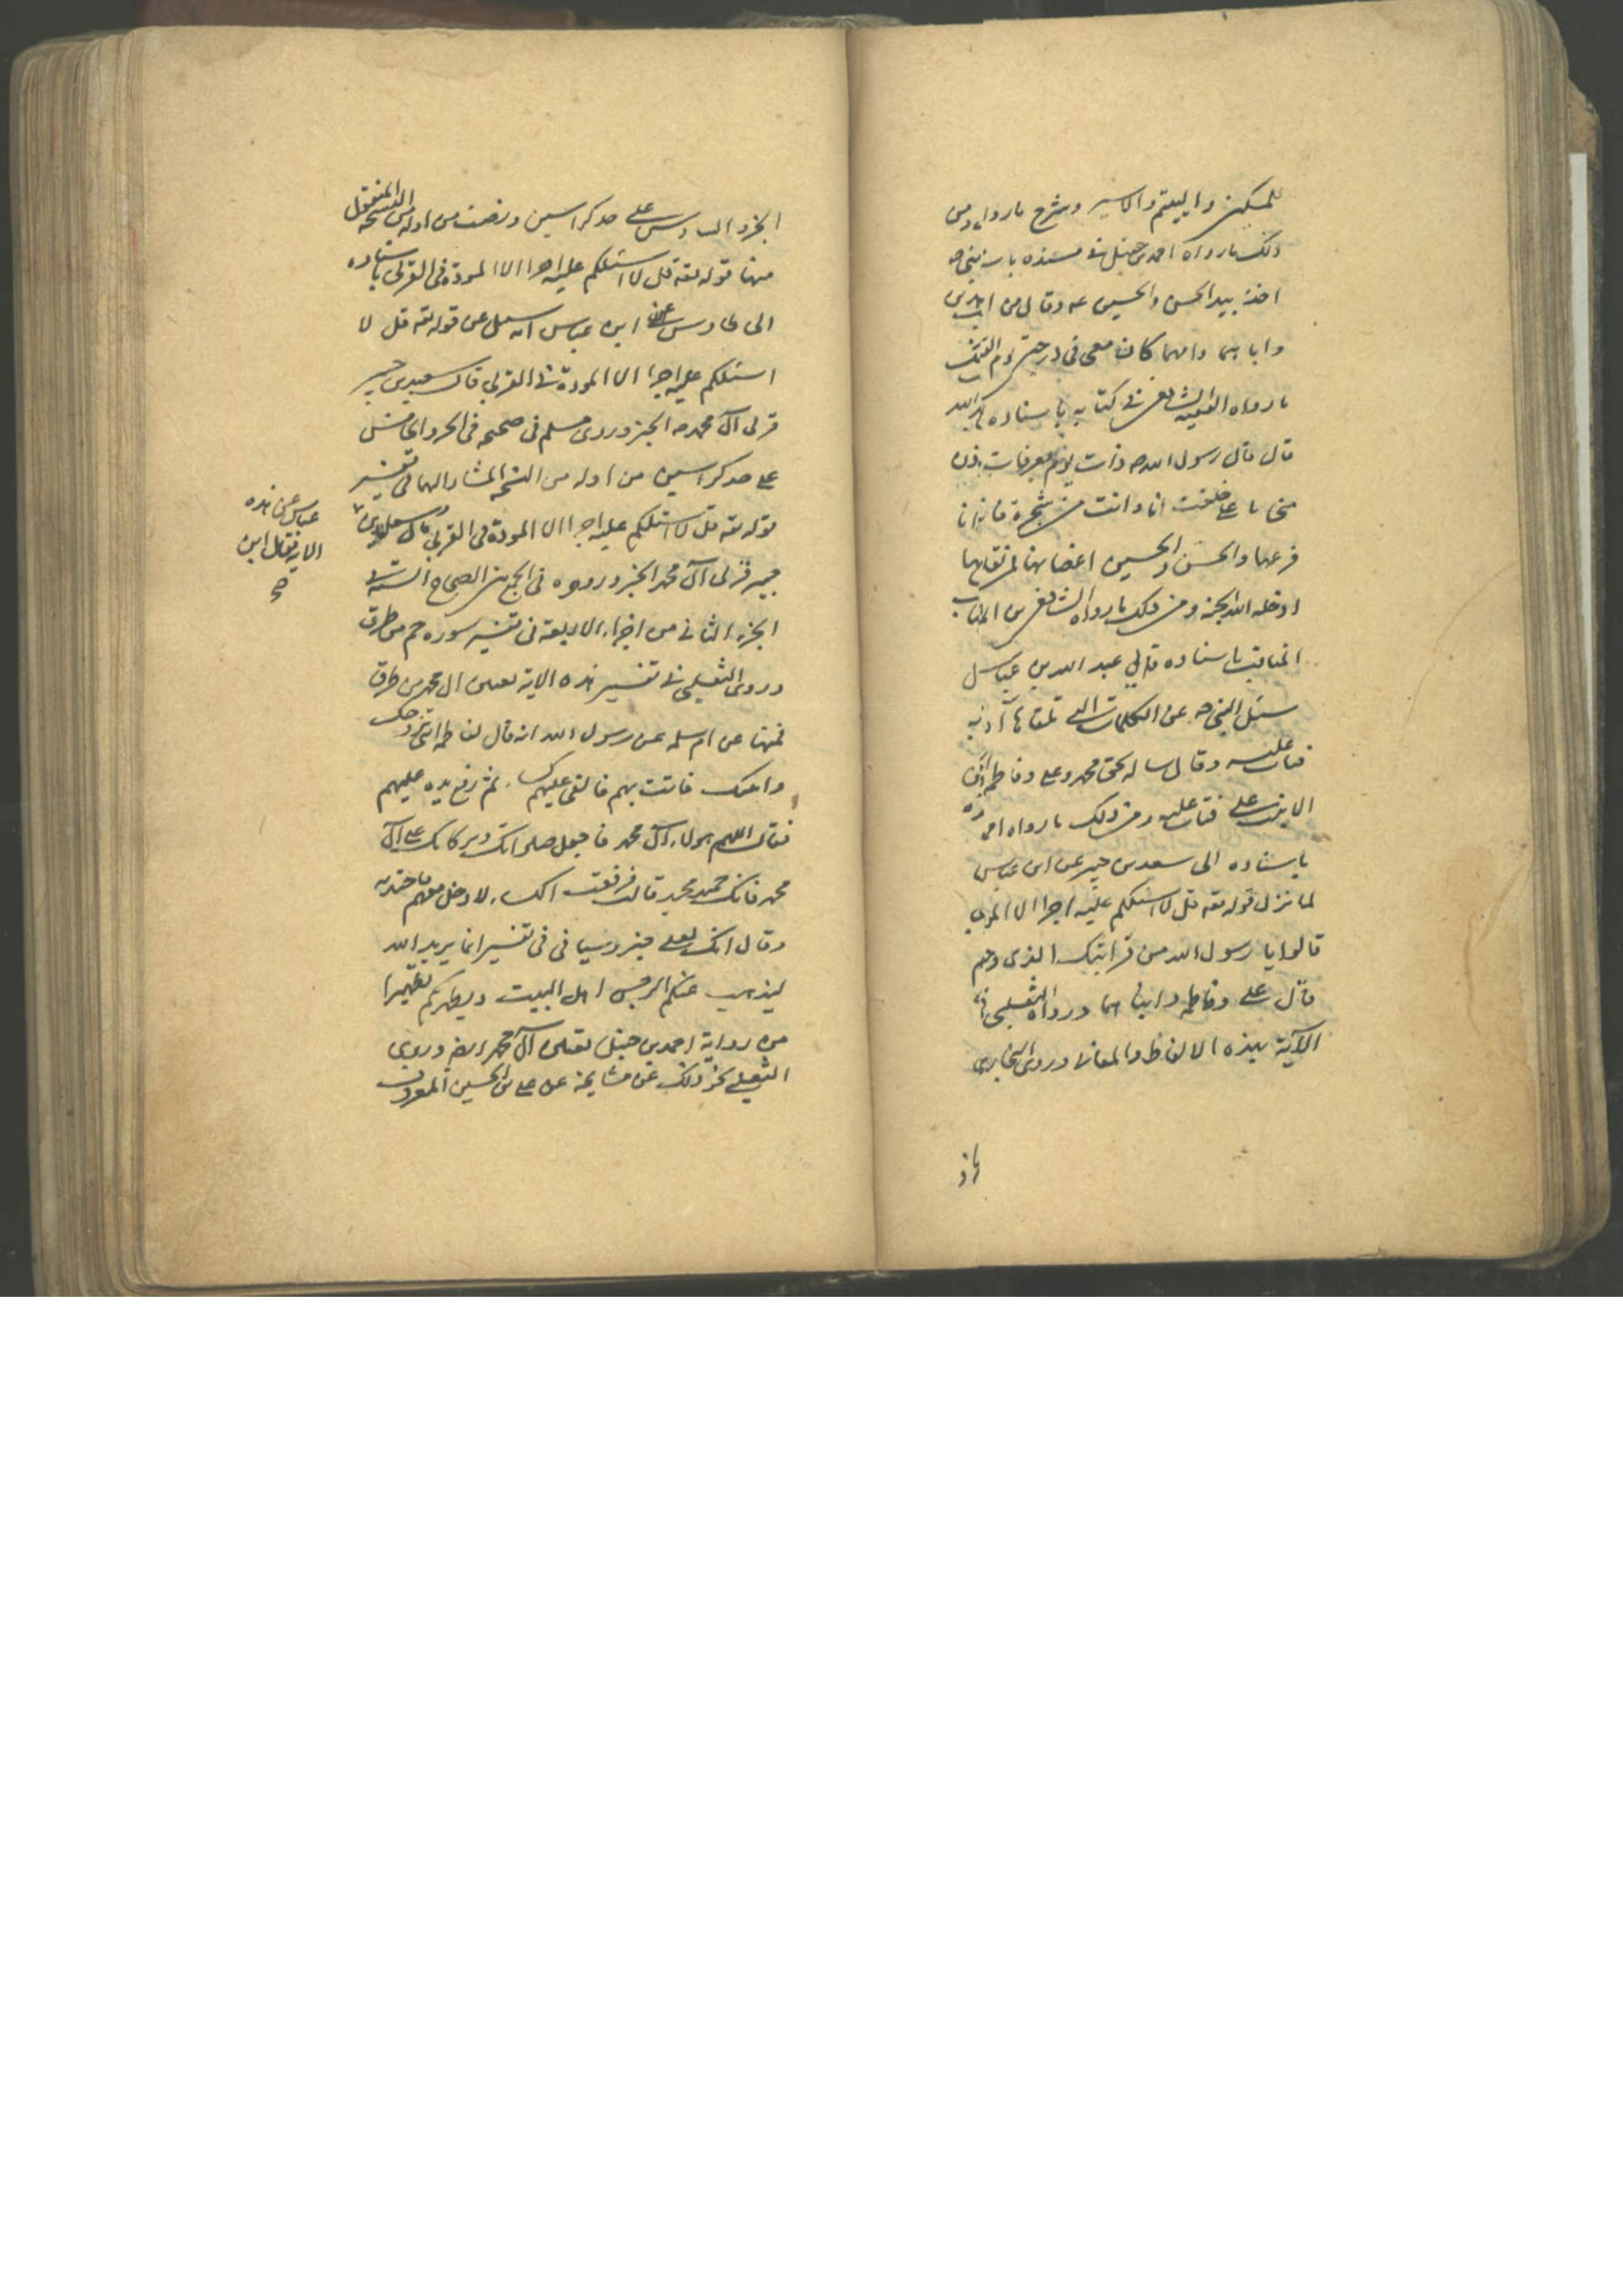 للمسكين واليتيم والاسير وشرح ما رواه ومن
ذلك ما رواه احمد بن حنبل في مسنده باب النبي ص
اخذ بيد الحسن والحسين عه وقال من احبني
واباهما وامهما كان معي في درجتي يوم القيمة
ما رواه الفقيه الشافعي في كتابه باسناده
قال قال رسول الله ص ذات يوم بعرفات ادن
مني يا علي خلقت انا وانت من شجرة فانا
فرعها والحسن والحسين اغصانها فمن تعلق بها
ادخله الله الجنة ومن ذلك ما رواه الشافعي من
المناقب باسناده قال عبد الله بن عباس
سئل النبي ص عن الكلمات التي تلقاها آدم
فتاب عليه وقال ساله بحق محمد وعلي وفاطمة
الا تبت علي فتاب عليه ومن ذلك ما رواه
باسناده الى سعد بن جبير عن ابن عباس
لما نزل قوله تعه قل لا اسئلكم عليه اجرا الا
قالوا يا رسول الله من قرابتك الذي وجبت
قال علي وفاطمة وابناهما ورواه الثعلبي في
الآية بهذه الالفاظ والمعاني وروى البخاري
في
الجزء السادس على حد كراسين ونصف من اوله من النسخة المنقول
منها قوله تعه قل لا اسئلكم عليه اجرا الا المودة في القربى باسناده
الى طاوس عن ابن عباس انه سئل عن قوله تعه قل لا
اسئلكم عليه اجرا الا المودة في القربى قال سعيد بن جبير
قربى آل محمد ص الخبر وروى مسلم في صحيحه في الجزو الخامس
على حد كراسين من اوله من النسخة المشار اليها في تفسير
قوله تعه قل لا اسئلكم عليه اجرا الا المودة في القربى قال سئل ابن
جبير قربى آل محمد الخبر ورووه في الجمع بين الصحاح الستة في
الجزء الثاني من اجزاء الاربعة في تفسير سورة حم من طرق
وروى الثعلبي في تفسير هذه الاية تعيين ال محمد من طرق
فمنها عن ام سلمه عن رسول الله انه قال لفاطمة ايتي بزوجك
وابنيك فاتت بهم فالقى عليهم كساء ثم رفع يده عليهم
فقال اللهم هولاء آل محمد فاجعل صلواتك وبركاتك على آل
محمد فانك حميد مجيد قالت فرفعت الكساء لادخل معهم فاجتذبه
وقال انك لعلى خير وسياتي في تفسير انما يريد الله
ليذهب عنكم الرجس اهل البيت ويطهركم تطهيرا
من رواية احمد بن حنبل تعيين آل محمد ايضا وروى
الثعلبي نحو ذلك عن مشايخه عن علي بن الحسين المعروف
عباس عن هذه
الاية فقال ابن
صح